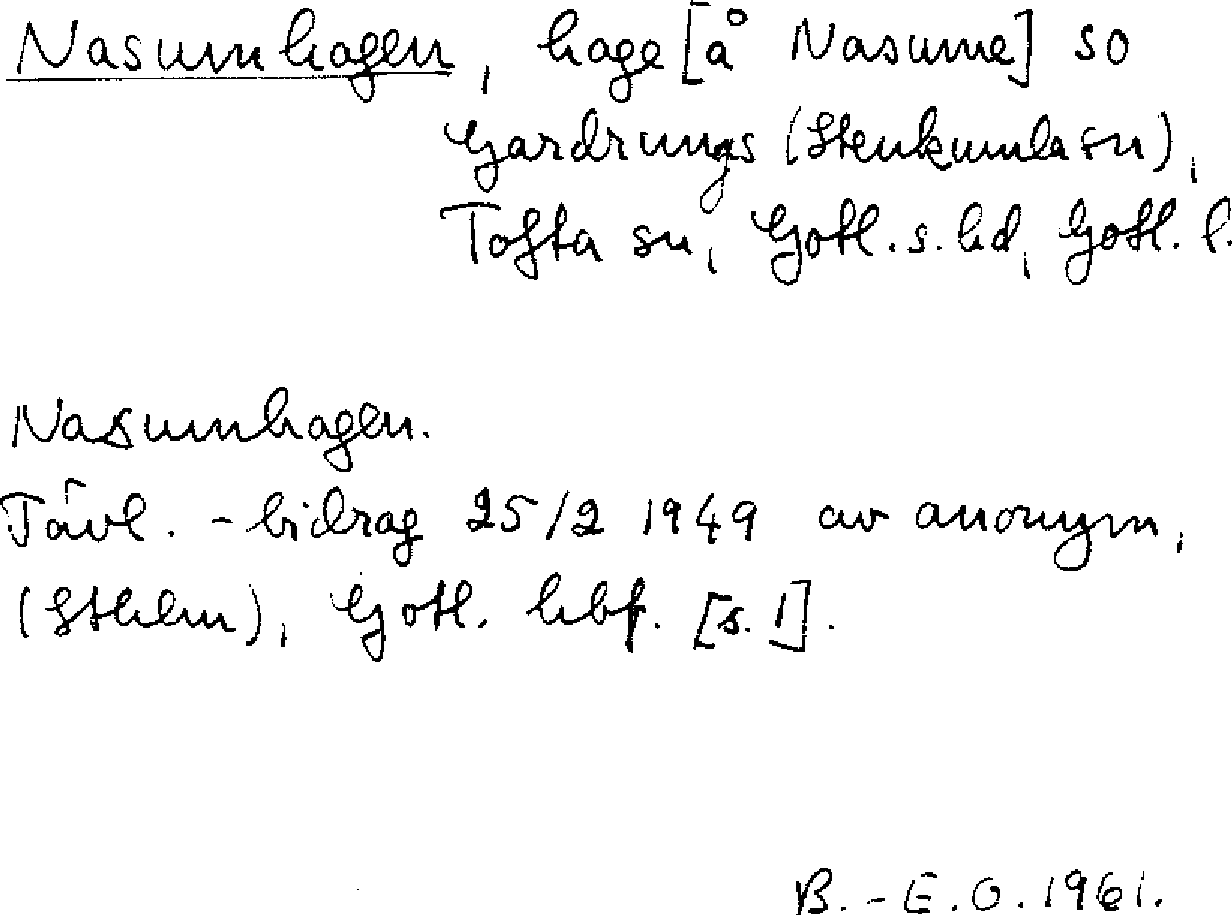 Nasumhagen, hage [å Nasume] so
Gardrungs (Stenkumla sn),
Tofta sn, Gotl. s. hd, Gotl. l.
Nasumhagen.
Tävl. - bidrag 25/2 1949 av anonym,
(Sthlm), Gotl. hbf. [s. 1].
B. - E. O. 1961.